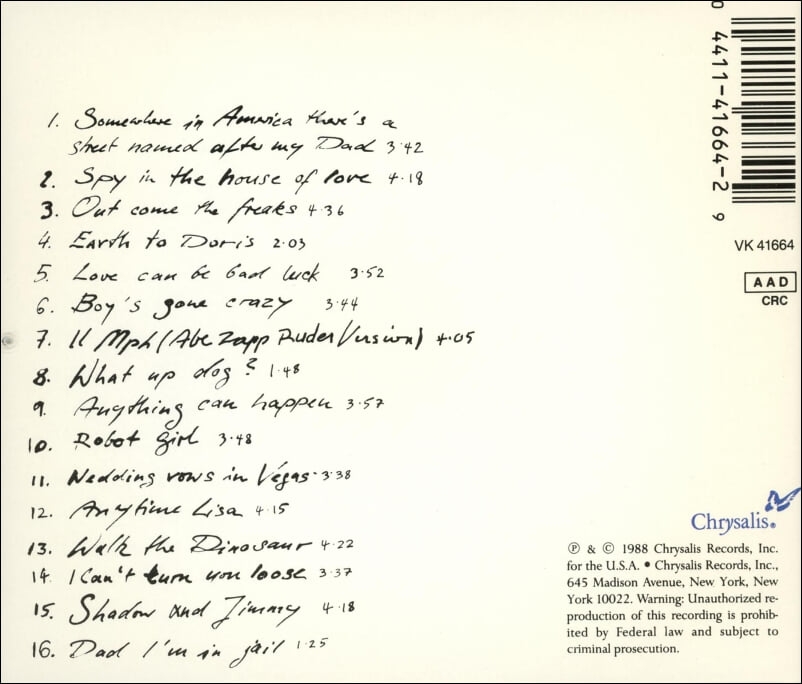 1. Somewhere in America there's a
street named after my Dad 3·42
2. Spy in the house of love 4·18
3. Out come the freaks 4·36
4. Earth to Doris 2·03
5. Love can be bad luck 3·52
6. Boy's gone crazy 3·44
7. 11 Mph (Abe Zapp Ruder Version) 4·05
8. What up dog? 1·48
9. Anything can happen 3·57
10. Robot girl 3·48
11. Wedding vows in Vegas 3·38
12. Anytime Lisa 4·15
13. Walk the Dinosaur 4·22
14. I Can't turn you loose 3·37
15. Shadow and Jimmy 4·18
16. Dad I'm in jail 1·25
0 4411-41664-2 9
VK 41664
AAD
CRC
Chrysalis®
℗ & © 1988 Chrysalis Records, Inc.
for the U.S.A. • Chrysalis Records, Inc.,
645 Madison Avenue, New York, New
York 10022. Warning: Unauthorized re-
production of this recording is prohib-
ited by Federal law and subject to
criminal prosecution.